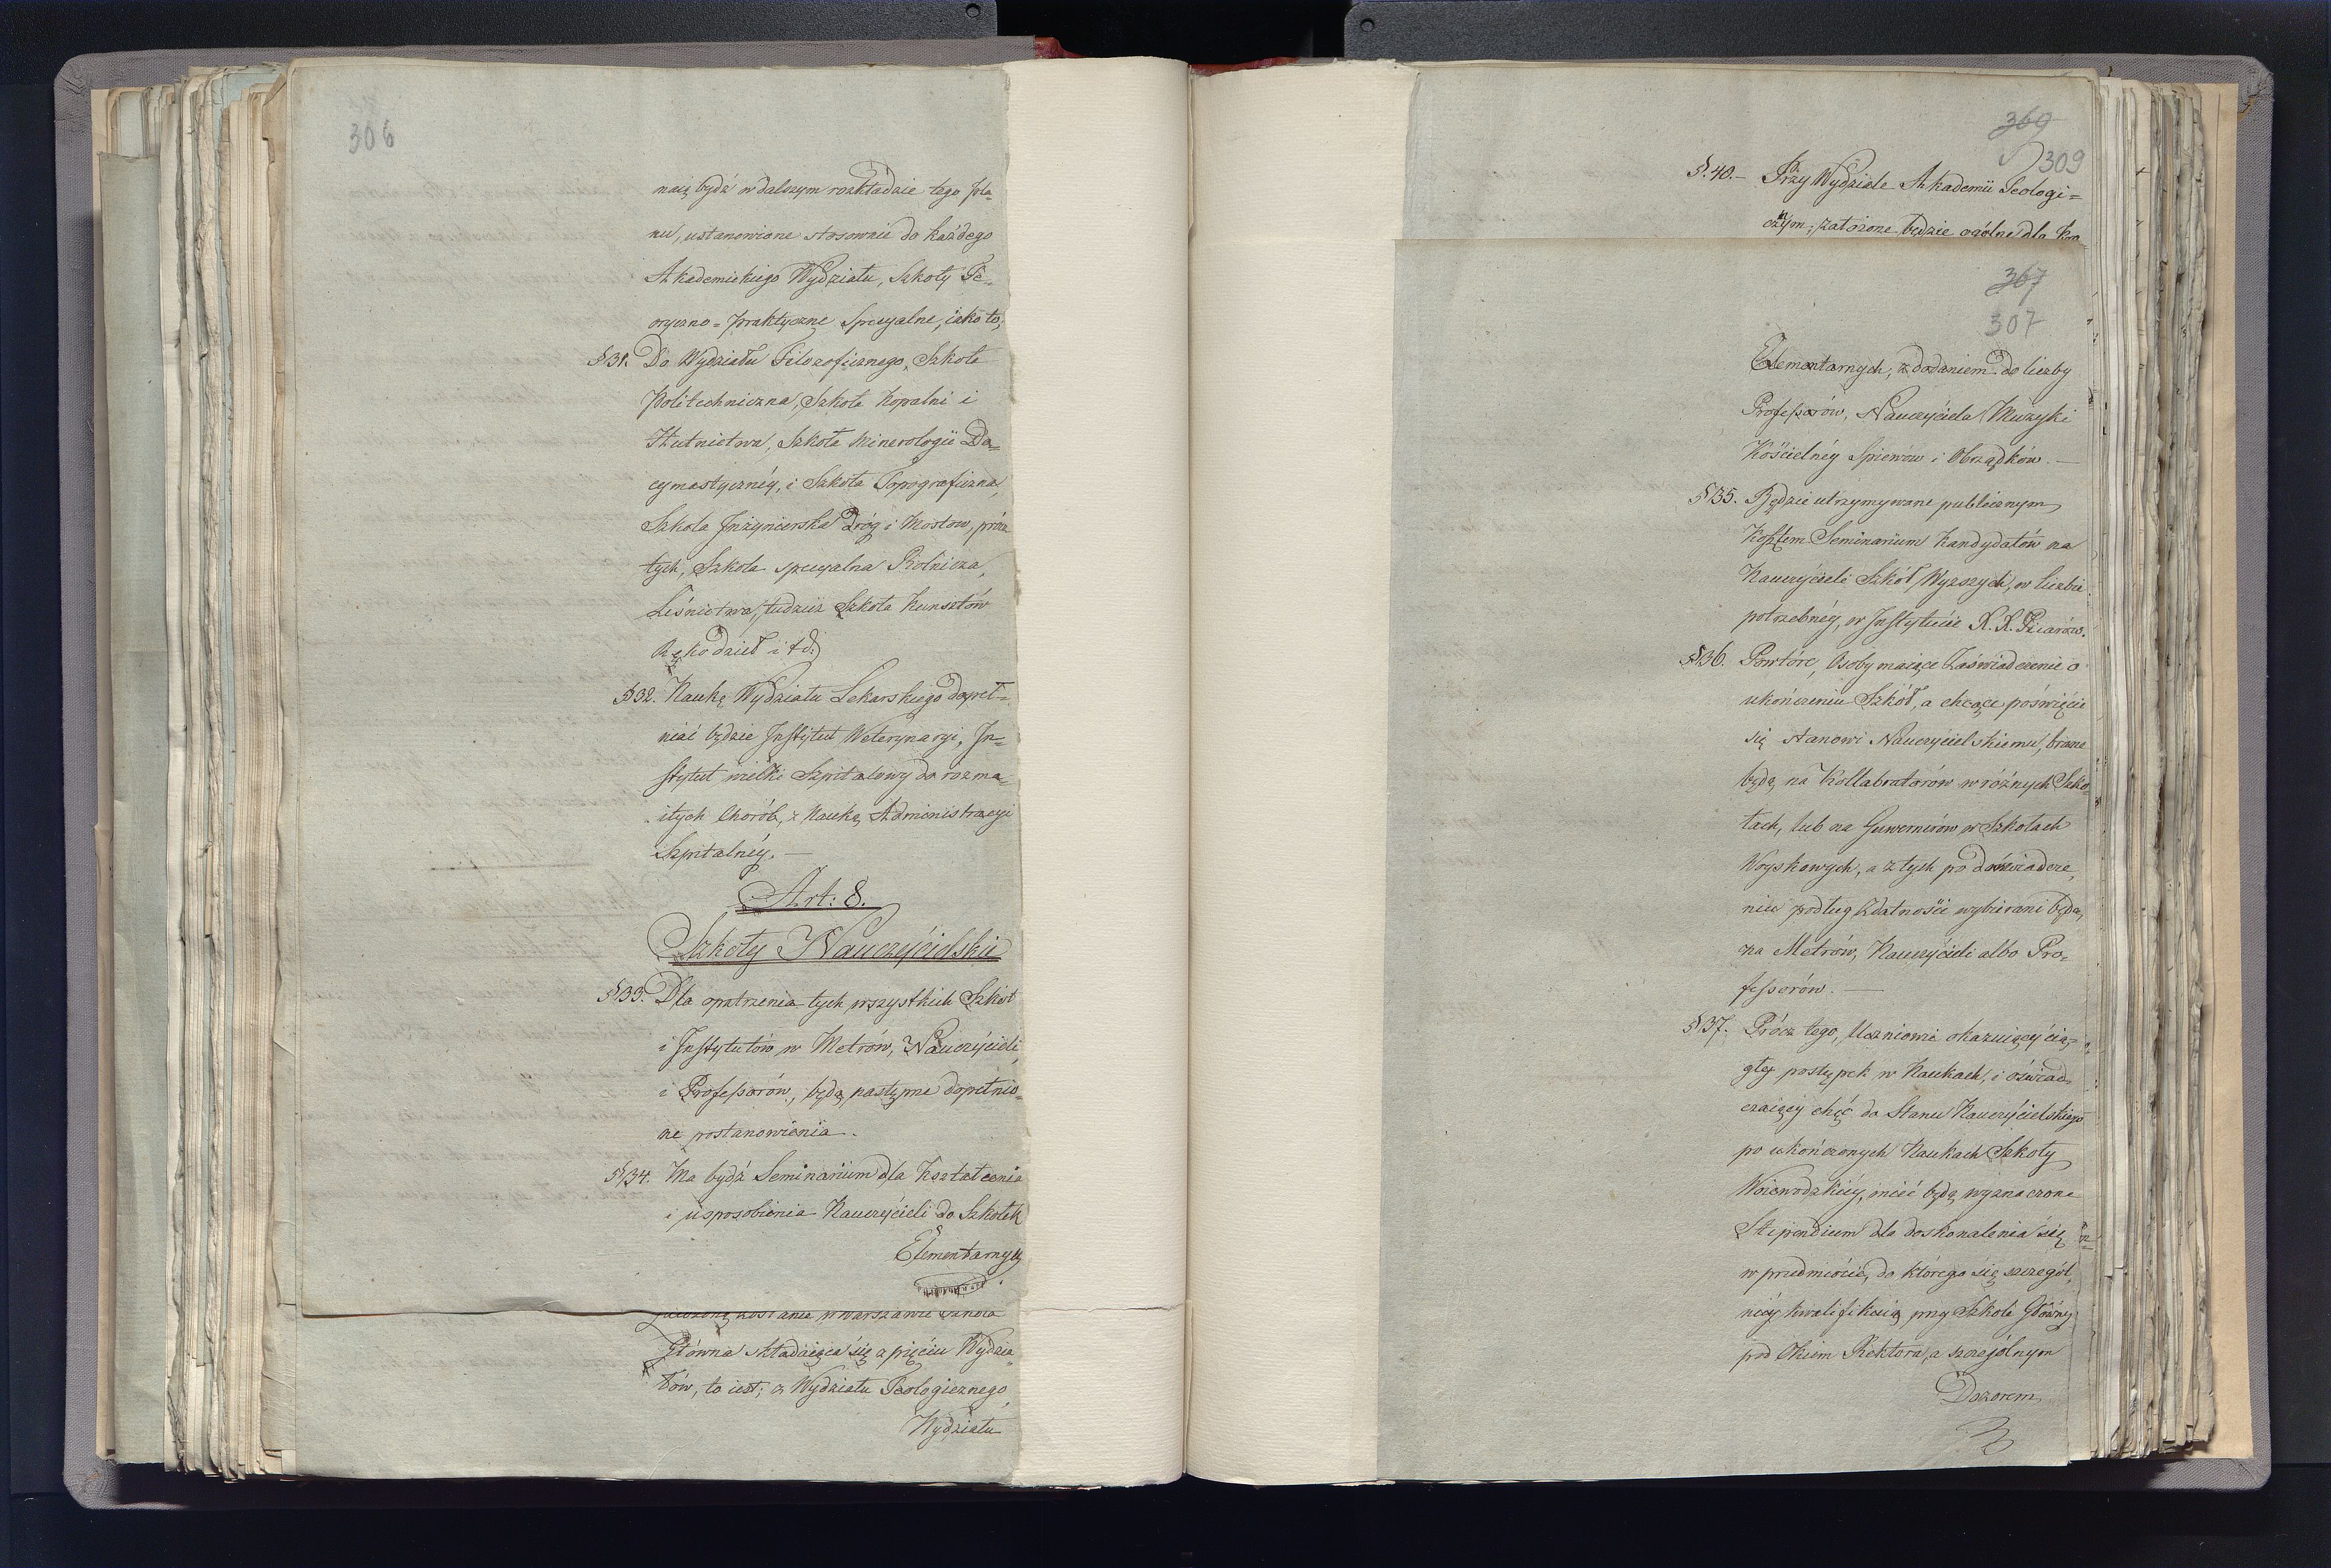 306
naią bydź w dalszym rozkładzie tego pla=
nu, ustanowione stosownie do każdego
Akademickiego Wydziału, Szkoły Te=
oryczno=praktyczne Specyalne, iako to;
§31. Do Wydziału Filozoficznego, Szkoła
Politechniczna, Szkoła Kopalni i
Hutnictwa, Szkoła Minerologii Do=
cymastyczney, i Szkoła Topograficzna,
Szkoła Jnżynierska Dróg i Mostow, prócz
tych, Szkoła specyalna Rolnicza,
Leśnictwa, tudzież Szkoła Kunsztów
Rękodzieł i t d:
§32. Naukę Wydziału Lekarskiego dopeł=
niać będzie Jnstytut Weterynaryi, Jn=
stytut wielki Szpitalowy do rozma=
itych Chorób, z Nauką Administracyi
Szpitalney. —
Art: 8.
Szkoły Nauczycielskie
§33. Dla opatrzenia tych wszystkich Szkół
i Jnstytutów w Metrów, Nauczycieli,
i Professorów, będą następne dopełnio=
ne postanowienia.
§34. Ma bydź Seminarium dla Kształcenia
i usposobienia Nauczycieli do Szkołek
Elementarnych
zostanie w Warszawie Szkoła
Główna składaiąca się z pięciu Wydzia=
łów, to iest; z Wydziału Teologicznego,
Wydziału
369
309
§.40.— Przy Wydziale Akademii Teologi=
cznym, założone będzie ogólne dla
367
307
Elementarnych, z dodaniem do liczby
Professorów, Nauczyciela Muzyki
Kościelney Spiewów i Obrządków. —
§35. Będzie utrzymywane publicznym
Kosztem Seminarium Kandydatów na
Nauczycieli Szkół Wyzszych, w liczbie
potrzebney, w Jnstytucie X. X. Piiarów.
§36. Powtóre, Osoby maiące Zaświadczenie o
ukończeniu Szkół, a chcące poświęcić
się stanowi Nauczycielskiemu, brane
będą na Kollaboratorów w różnych Szko=
łach, lub na Guwernerów w Szkołach
Woyskowych, a z tych po doświadcze=
niu podług zdatności wybierani będą,
na Metrów, Nauczycieli albo Pro=
fessorów. —
§37. Prócz tego, Uczniowie okazuiący cią=
gły postępek w Naukach, i oświad=
czaiący chęć do Stanu Nauczycielskiego
po ukończonych Naukach Szkoły
Woiewodzkiey, mieć będą wyznaczone
Stipendium dla doskonalenia się
w przedmiocie, do którego się szczegól=
niey kwalifikuią przy Szkole Główney
pod Okiem Rektora, a szczególnym
Dozorem